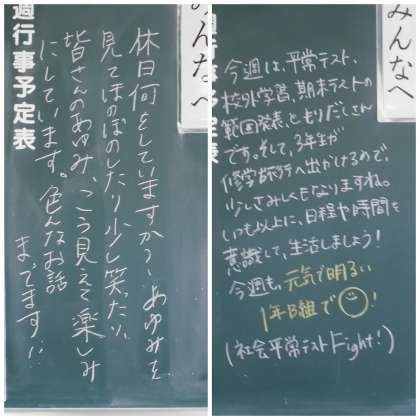 週行事予定表
みんなへ
休日何をしていますか?あゆみを
見てほのぼのしたり少し笑ったり、
皆さんのあゆみ、こう見えて楽しみ
にしています。色んなお話
まってます!!
みんなへ
今週は、平常テスト、
校外学習、期末テストの
範囲発表、ともりだくさん
です。そして、3年生が
修学旅行へ出かけるので、
少しさみしくもなりますね。
いつも以上に、日程や時間を
意識して、生活しましょう!
今週も、元気で明るい
1年B組で!
(社会平常テストFight!)